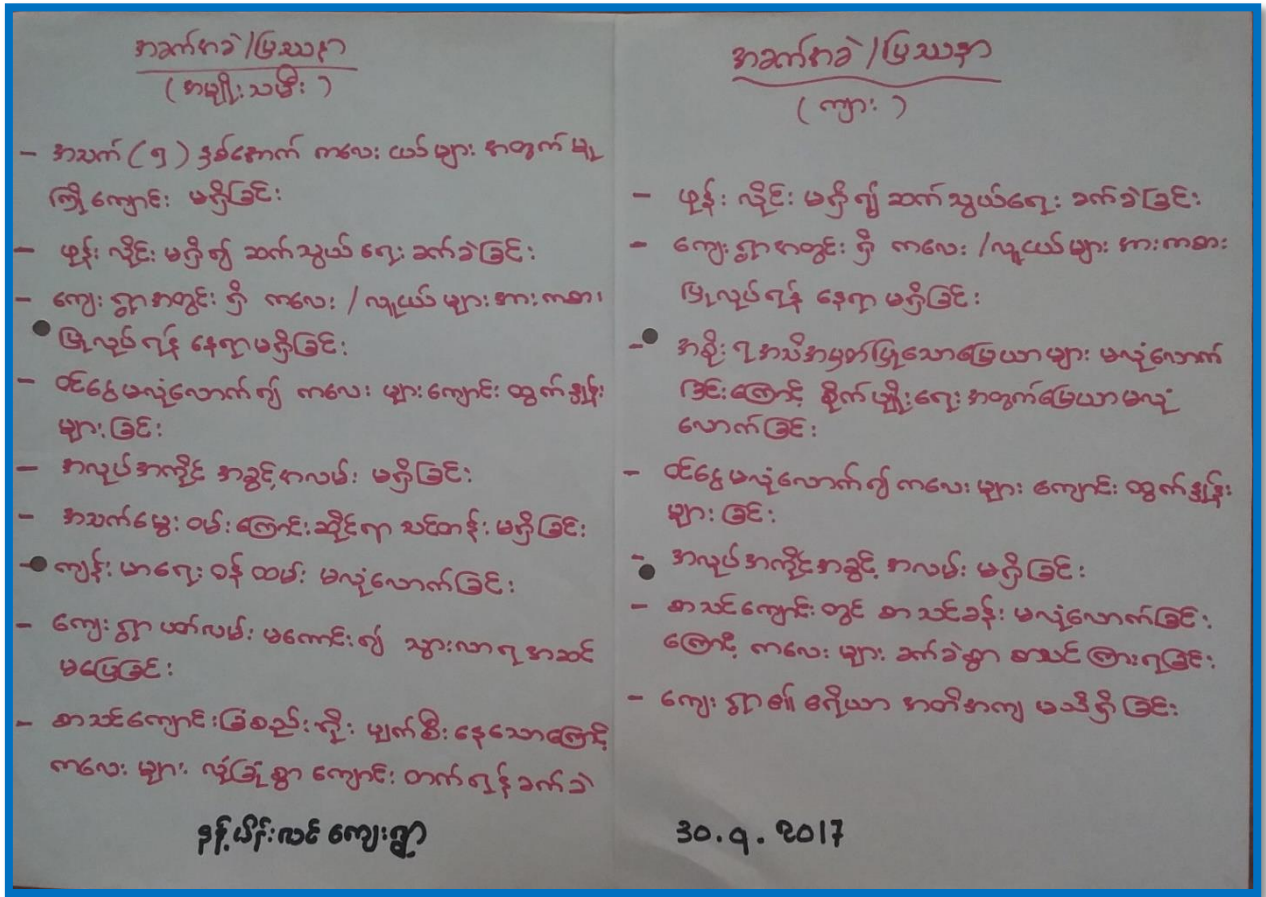 အခက်အခဲ/ပြဿနာ
(အမျိုးသမီး)
- အသက်(၅)နှစ်အောက် ကလေးငယ်များ အတွက် မူ
ကြိုကျောင်း မရှိခြင်း
- ဖုန်းလိုင်းမရှိ၍ ဆက်သွယ်ရေး ခက်ခဲခြင်း
- ကျေးရွာအတွင်းရှိ ကလေး/လူငယ်များအားကစား
ပြုလုပ်ရန် နေရာမရှိခြင်း
- ဝင်ငွေမလုံလောက်၍ ကလေးများကျောင်းထွက်နှုန်း
များခြင်း
- အလုပ်အကိုင် အခွင့်အလမ်း မရှိခြင်း
- အသက်မွေးဝမ်းကြောင်းဆိုင်ရာ သင်တန်းမရှိခြင်း
- ကျန်းမာရေးဝန်ထမ်း မလုံလောက်ခြင်း
- ကျေးရွာပတ်လမ်းမကောင်း၍ သွားလာရအဆင်
မပြေခြင်း
- စာသင်ကျောင်းခြံစည်းရိုး ပျက်စီးနေသောကြောင့်
ကလေးများ လုံခြုံစွာ ကျောင်းတက်ရန်ခက်ခဲ
ကျေးရွာ
အခက်အခဲ/ပြဿနာ
(ကျား)
- ဖုန်းလိုင်းမရှိ၍ ဆက်သွယ်ရေး ခက်ခဲခြင်း
- ကျေးရွာအတွင်းရှိ ကလေး/လူငယ်များအားကစား
ပြုလုပ်ရန် နေရာမရှိခြင်း
- အစိုးရအသိအမှတ်ပြုသောမြေယာများ မလုံလောက်
ခြင်းကြောင့် စိုက်ပျိုးရေးအတွက်မြေယာမလုံ
လောက်ခြင်း
- ဝင်ငွေမလုံလောက်၍ ကလေးများ ကျောင်းထွက်နှုန်း
များခြင်း
- အလုပ်အကိုင်အခွင့်အလမ်း မရှိခြင်း
- စာသင်ကျောင်းတွင် စာသင်ခန်း မလုံလောက်ခြင်း
ကြောင့် ကလေးများ ခက်ခဲစွာ စာသင်ကြားရခြင်း
- ကျေးရွာ၏ ဧရိယာ အတိအကျ မသိရှိခြင်း
30.9.2017